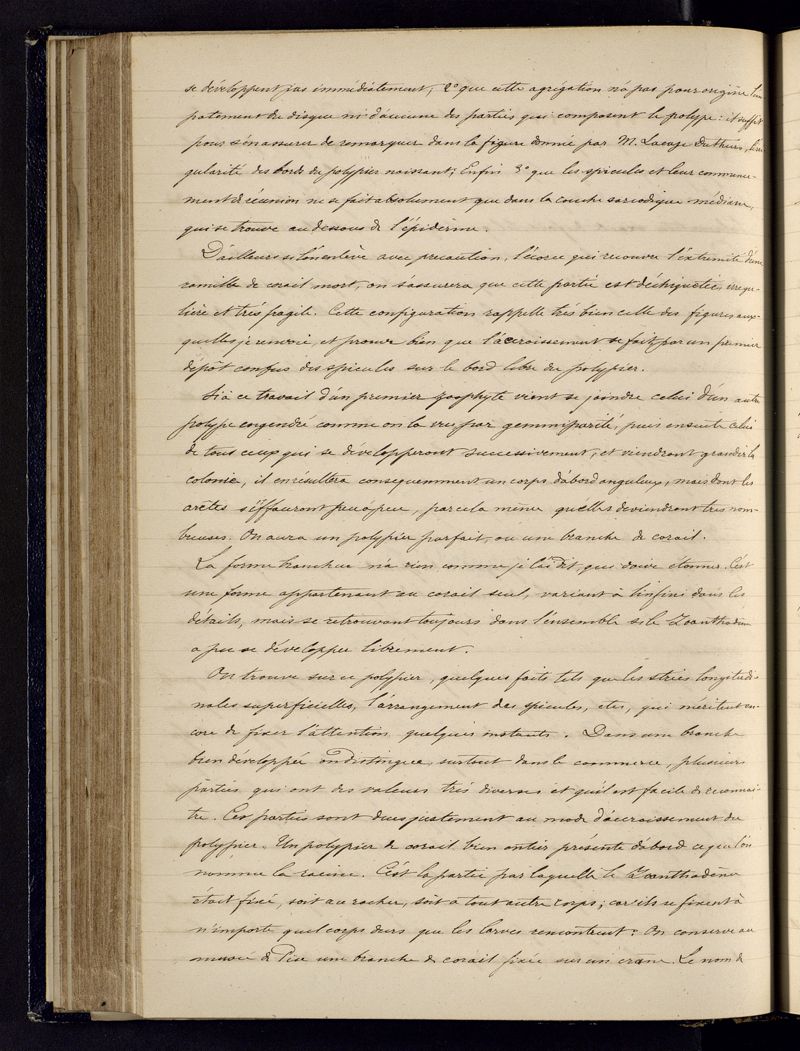 se développent pas immédiatement, 2° que cette agrégation n'a pas pour origine l'em
patement du disque ni d'aucune des parties qui composent le polype: il suffit
pour s'en assurer de remarquer dans la figure donnée par M. Lacaze Duthiers, l'irré
gularité des bords du polypier naissant; Enfin 3° que les spicules et leur commence-
ment de réunion ne se fait absolument que dans la couche sarcodique médiane,
qui se trouve au dessous de l'épiderme.
D'ailleurs si l'on enlève avec precaution, l'écorce qui recouvre l'extrémité d'une
ramille de corail mort, on s'assurera que cette partie est déchiquetée, irregu-
lière et très fragile. Cette configuration rappelle très bien celle des figures aux-
quelles je renvoie, et prouve bien que l'accroissement se fait, par un premier
dépôt confus des spicules sur le bord libre du polypier.
Si à ce travail d'un premier zoophyte vient se joindre celui d'un autre
polype engendré comme on l'a vu par gemmiparité, puis ensuite celui
de tous ceux qui se développeront successivement, et viendront grandir la
colonie, il en résultera consequemment un corps d'abord anguleux, mais dont les
arêtes s'effaceront peu à peu, par cela même qu'elles deviendront tres nom-
breuses. On aura un polypier parfait, ou une branche de corail.
La forme branchue n'a rien comme je l'ai dit, qui doive étonner. C'est
une forme appartenant au corail seul, variant à l'infini dans les
détails, mais se retrouvant toujours dans l'ensemble si le Zoanthodème
a pu se développer librement.
On trouve sur ce polypier, quelques faits tels que les stries longitudi-
nales superficielles, l'arrangement des spicules, etc, qui méritent en-
core de fixer l'attention quelques instants. Dans une branche
bien développée on distingue, surtout dans le commerce, plusieurs
parties qui ont des valeurs très diverses et qu'il est facile de reconnai-
tre. Ces parties sont dues justement au mode d'accroissement du
polypier. Un polypier de corail bien entier présente d'abord ce que l'on
nomme la racine. C'est la partie par laquelle le Zoanthodème
était fixé, soit au rocher, soit à tout autre corps; car ils se fixent à
n'importe quel corps durs que les larves rencontrent: On conserve au
musée de Pise une branche de corail fixée sur un crane. Le nom de